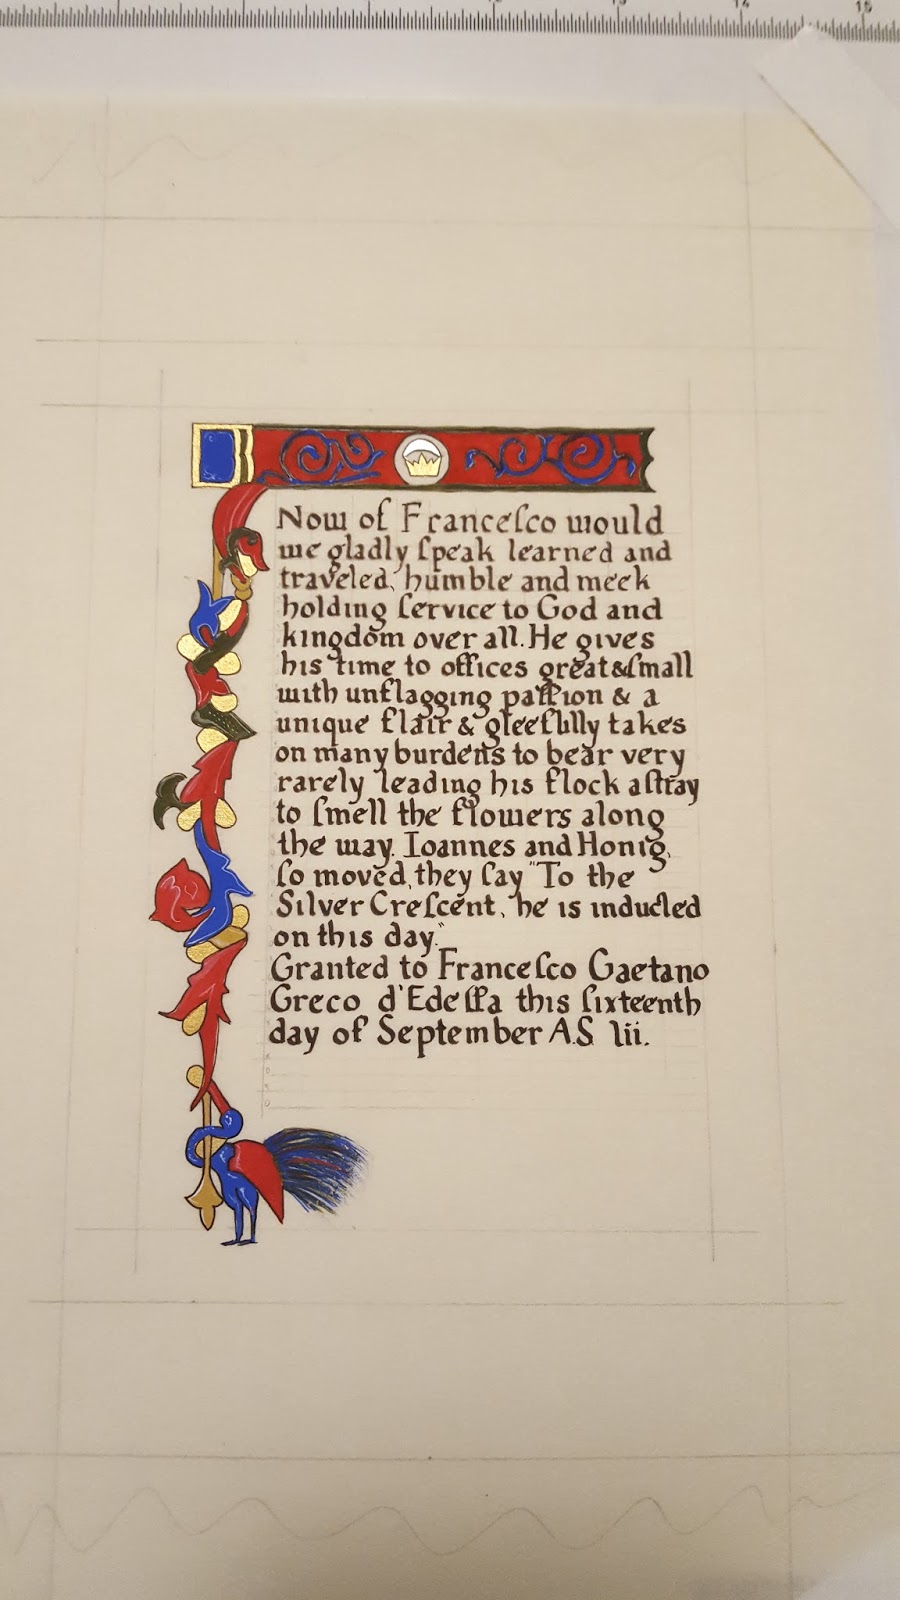 13
14
15
Now of Franceſco would
we gladly ſpeak learned and
traveled, humble and meek
holding ſervice to God and
kingdom over all. He gives
his time to offices great&ſmall
with unflagging paſſion & a
unique flair & gleefully takes
on many burdens to bear very
rarely leading his flock aſtray
to ſmell the flowers along
the way. Ioannes and Honig,
ſo moved, they ſay "To the
Silver Creſcent, he is inducted
on this day."
Granted to Franceſco Gaetano
Greco d'Edeſſa this ſixteenth
day of September A.S. lii.